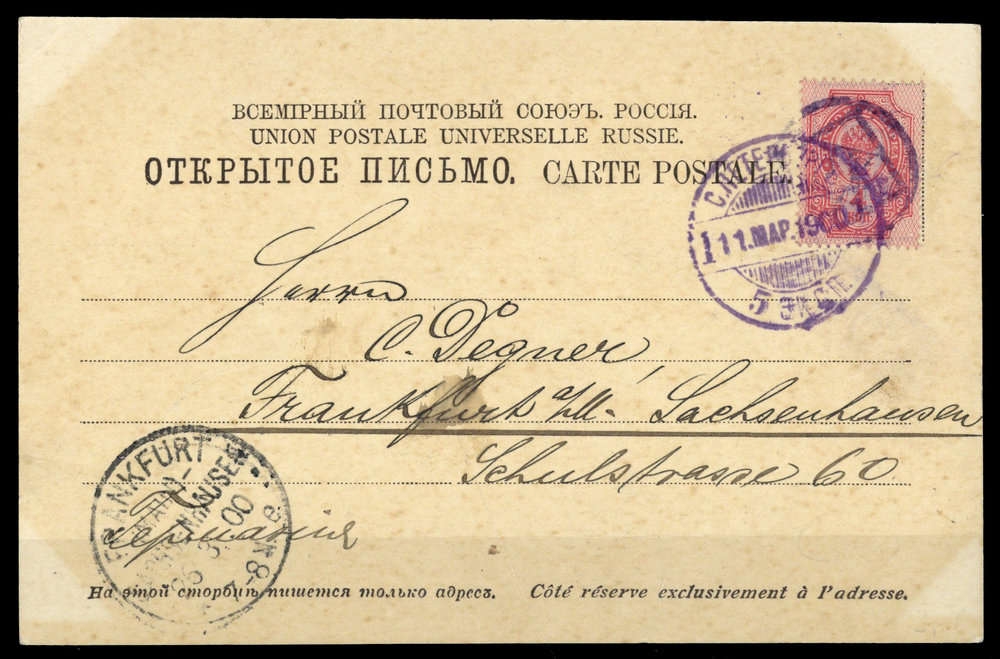 ВСЕМІРНЫЙ ПОЧТОВЫЙ СОЮЭЪ. РОССІЯ.
UNION POSTALE UNIVERSELLE RUSSIE.
ОТКРЫТОЕ ПИСЬМО. CARTE POSTALE.
11.МАР.1900
5 ЭКСП.
Herrn
C. Degner,
Frankfurt a/M. Sachsenhausen
Schulstrasse 60
Германія
FRANKFURT
SACHSENHAUSEN
00
На этой сторбиъ пишется только адресъ. Côté réserve exclusivement à l'adresse.